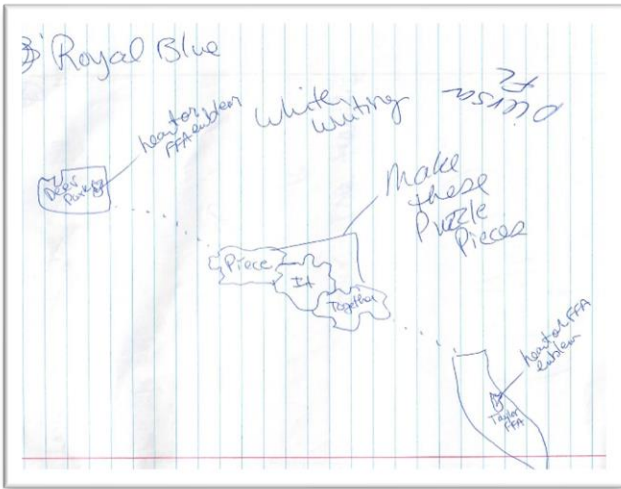 Royal Blue
White
Writing
Pierson
FL
heart or
FFA emblem
Deer
Park
Make
these
Puzzle
Pieces
Piece
It
Together
heart or FFA
emblem
Taylor
FFA